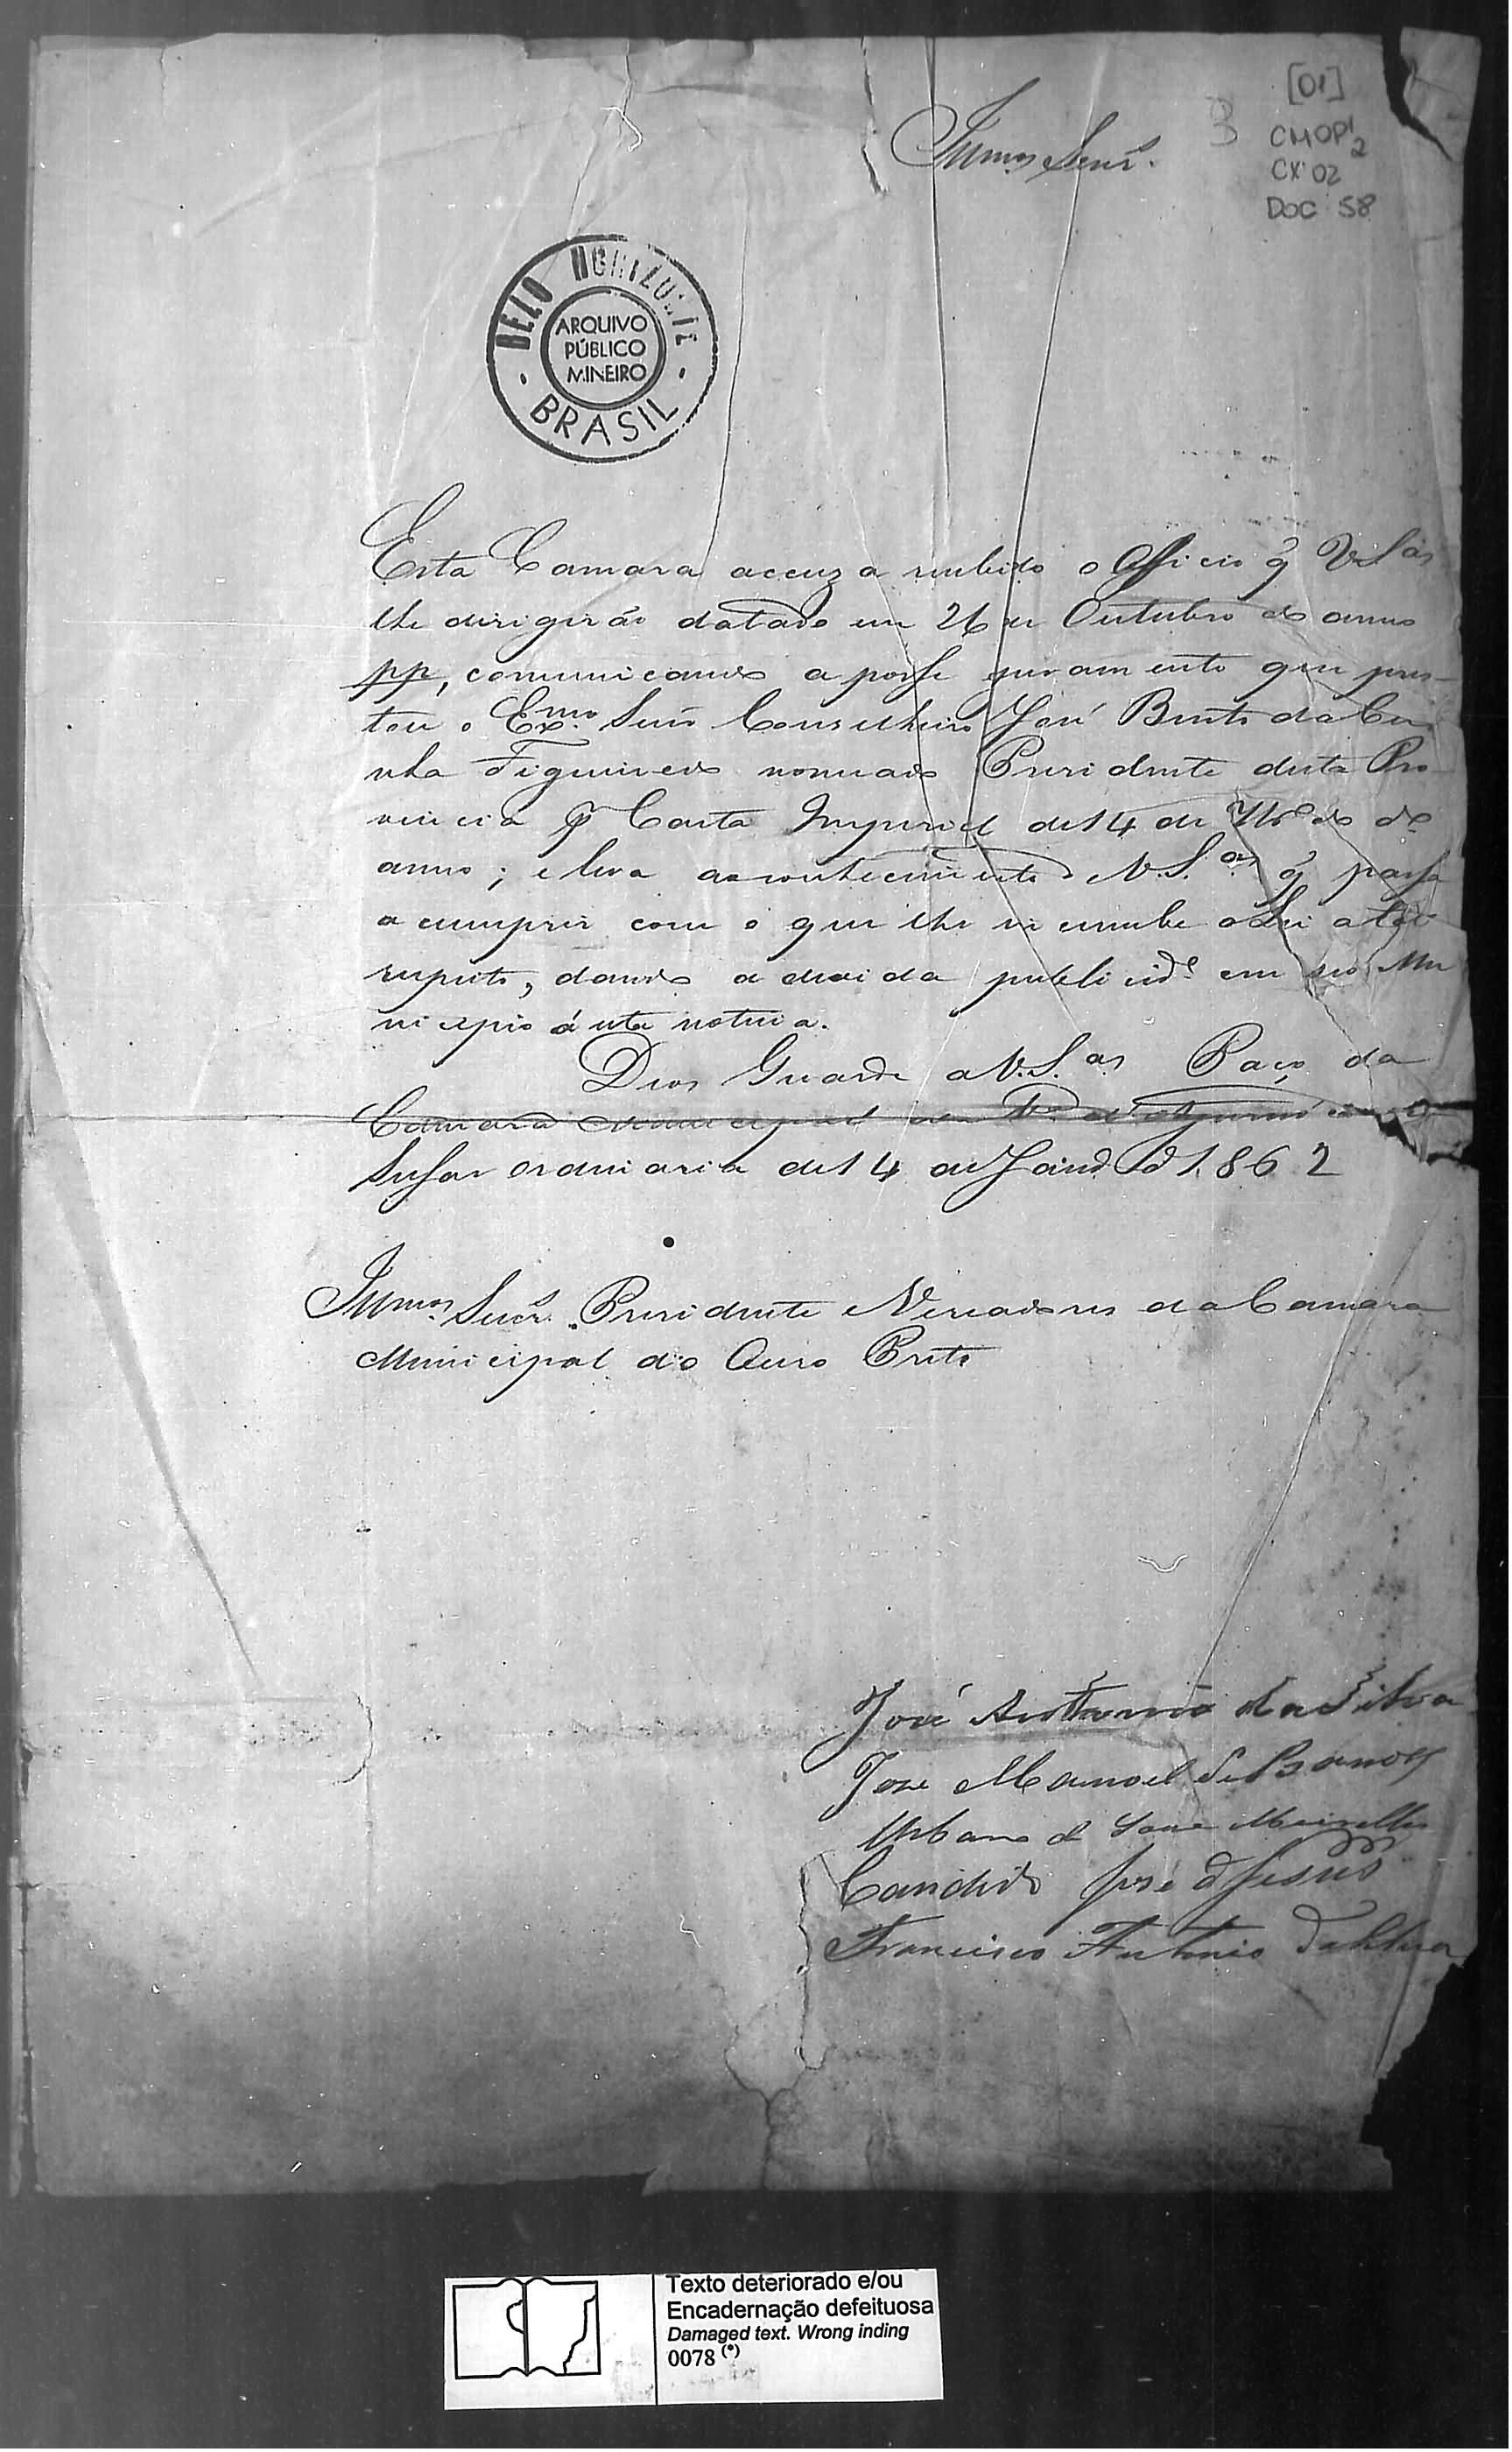 [01]
3
CMOP 1/2
CX 02
DOC 58
Illmos Senrs.
BELO HORIZONTE
ARQUIVO
PÚBLICO
MINEIRO
BRASIL
Esta Camara accuza recebido o Officio q̃ VSas
lhe dirigirão datado em 26 de Outubro do anno
pp, communicando a posse juramento que pres-
tou o Exmo Senr Conselheiro José Bento da Cu
nha Figueiredo nomeado Presidente desta Pro
vincia p Carta Imperial de 14 de 7bro do do
anno; e leva ao conhecimento V.S.as q̃ passa
a cumprir com o que lhe incumbe a Lei a tal
respeito, dando a devida publicide em seo Mu
nicipio á esta noticia.
Deos Guarde a V.S.as Paço da
Camara Municipal da Va
Sessão ordinaria de 14 de Janro d 1862
Illmos Senrs. Presidente e Vereadores da Camara
Municipal do Ouro Preto
José Antonio da Silva
Jose Manoel de Barros
Urbano de Meirelles
Candido José d Jesus
Francisco Antonio
Texto deteriorado e/ou
Encadernação defeituosa
Damaged text. Wrong inding
0078 (*)